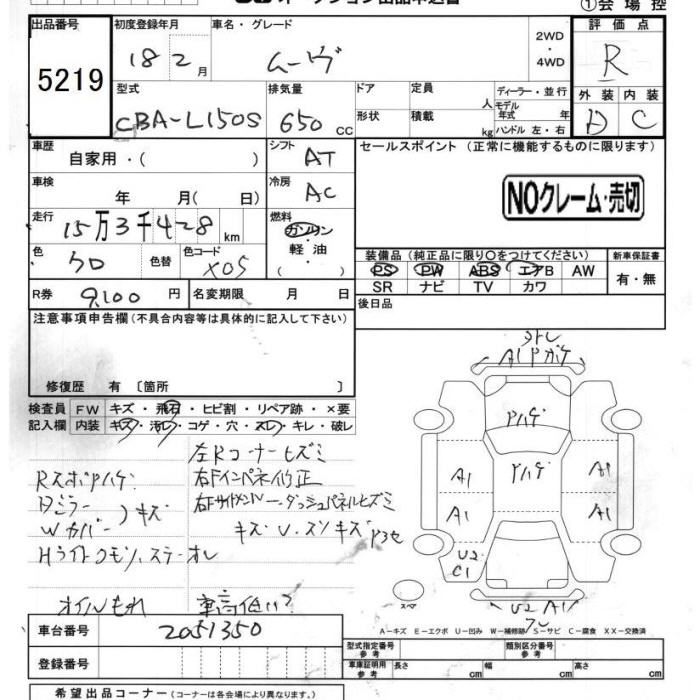 ①会場控
出品番号
5219
初度登録年月
18 2月
車名・グレード
ムーヴ
2WD
・
4WD
評価点
R
型式
CBA-L150S
排気量
650cc
ドア
形状
定員
人
積載
kg
ディーラー・並行
モデル年式 年
ハンドル 左・右
外装 内装
D C
車歴
自家用・( )
シフト
AT
セールスポイント(正常に機能するものに限ります)
車検
年 月( 日)
冷房
AC
NOクレーム・売切
走行
15万3千428km
燃料
ガソリン
軽・油
( ・ )
色
クロ
色替
色コード
X05
装備品(純正品に限り○をつけてください)
新車保証書
PS PW ABS エアB AW
SR ナビ TV カワ
有・無
R券
9,100円
名変期限 月 日
後日品
注意事項申告欄(不具合内容等は具体的に記入して下さい)
修復歴 有〔箇所 〕
検査員記入欄
FW キズ・飛石・ヒビ割・リペア跡・×要
内装 キズ・汚れ・コゲ・穴・スレ・キレ・破レ
左Rコーナーヒズミ
RスポPハゲ
右Fインパネ修正
Dミラー
Wカバー
キズ
Hライトクモリ、ステーオレ
オイルもれ
車高低い?
A1 Pハゲ
Pハゲ
Pハゲ
A1 A1
A1 A1
U2
C1
スペア
U2 A1
A-キズ E-エクボ U-凹み W-補修跡 S-サビ C-腐食 XX-交換済
車台番号
2051350
登録番号
型式指定番号 参考
類別区分番号 参考
車庫証明用 参考
長さ cm
幅 cm
高さ cm
希望出品コーナー(コーナーは各会場により異なります。)